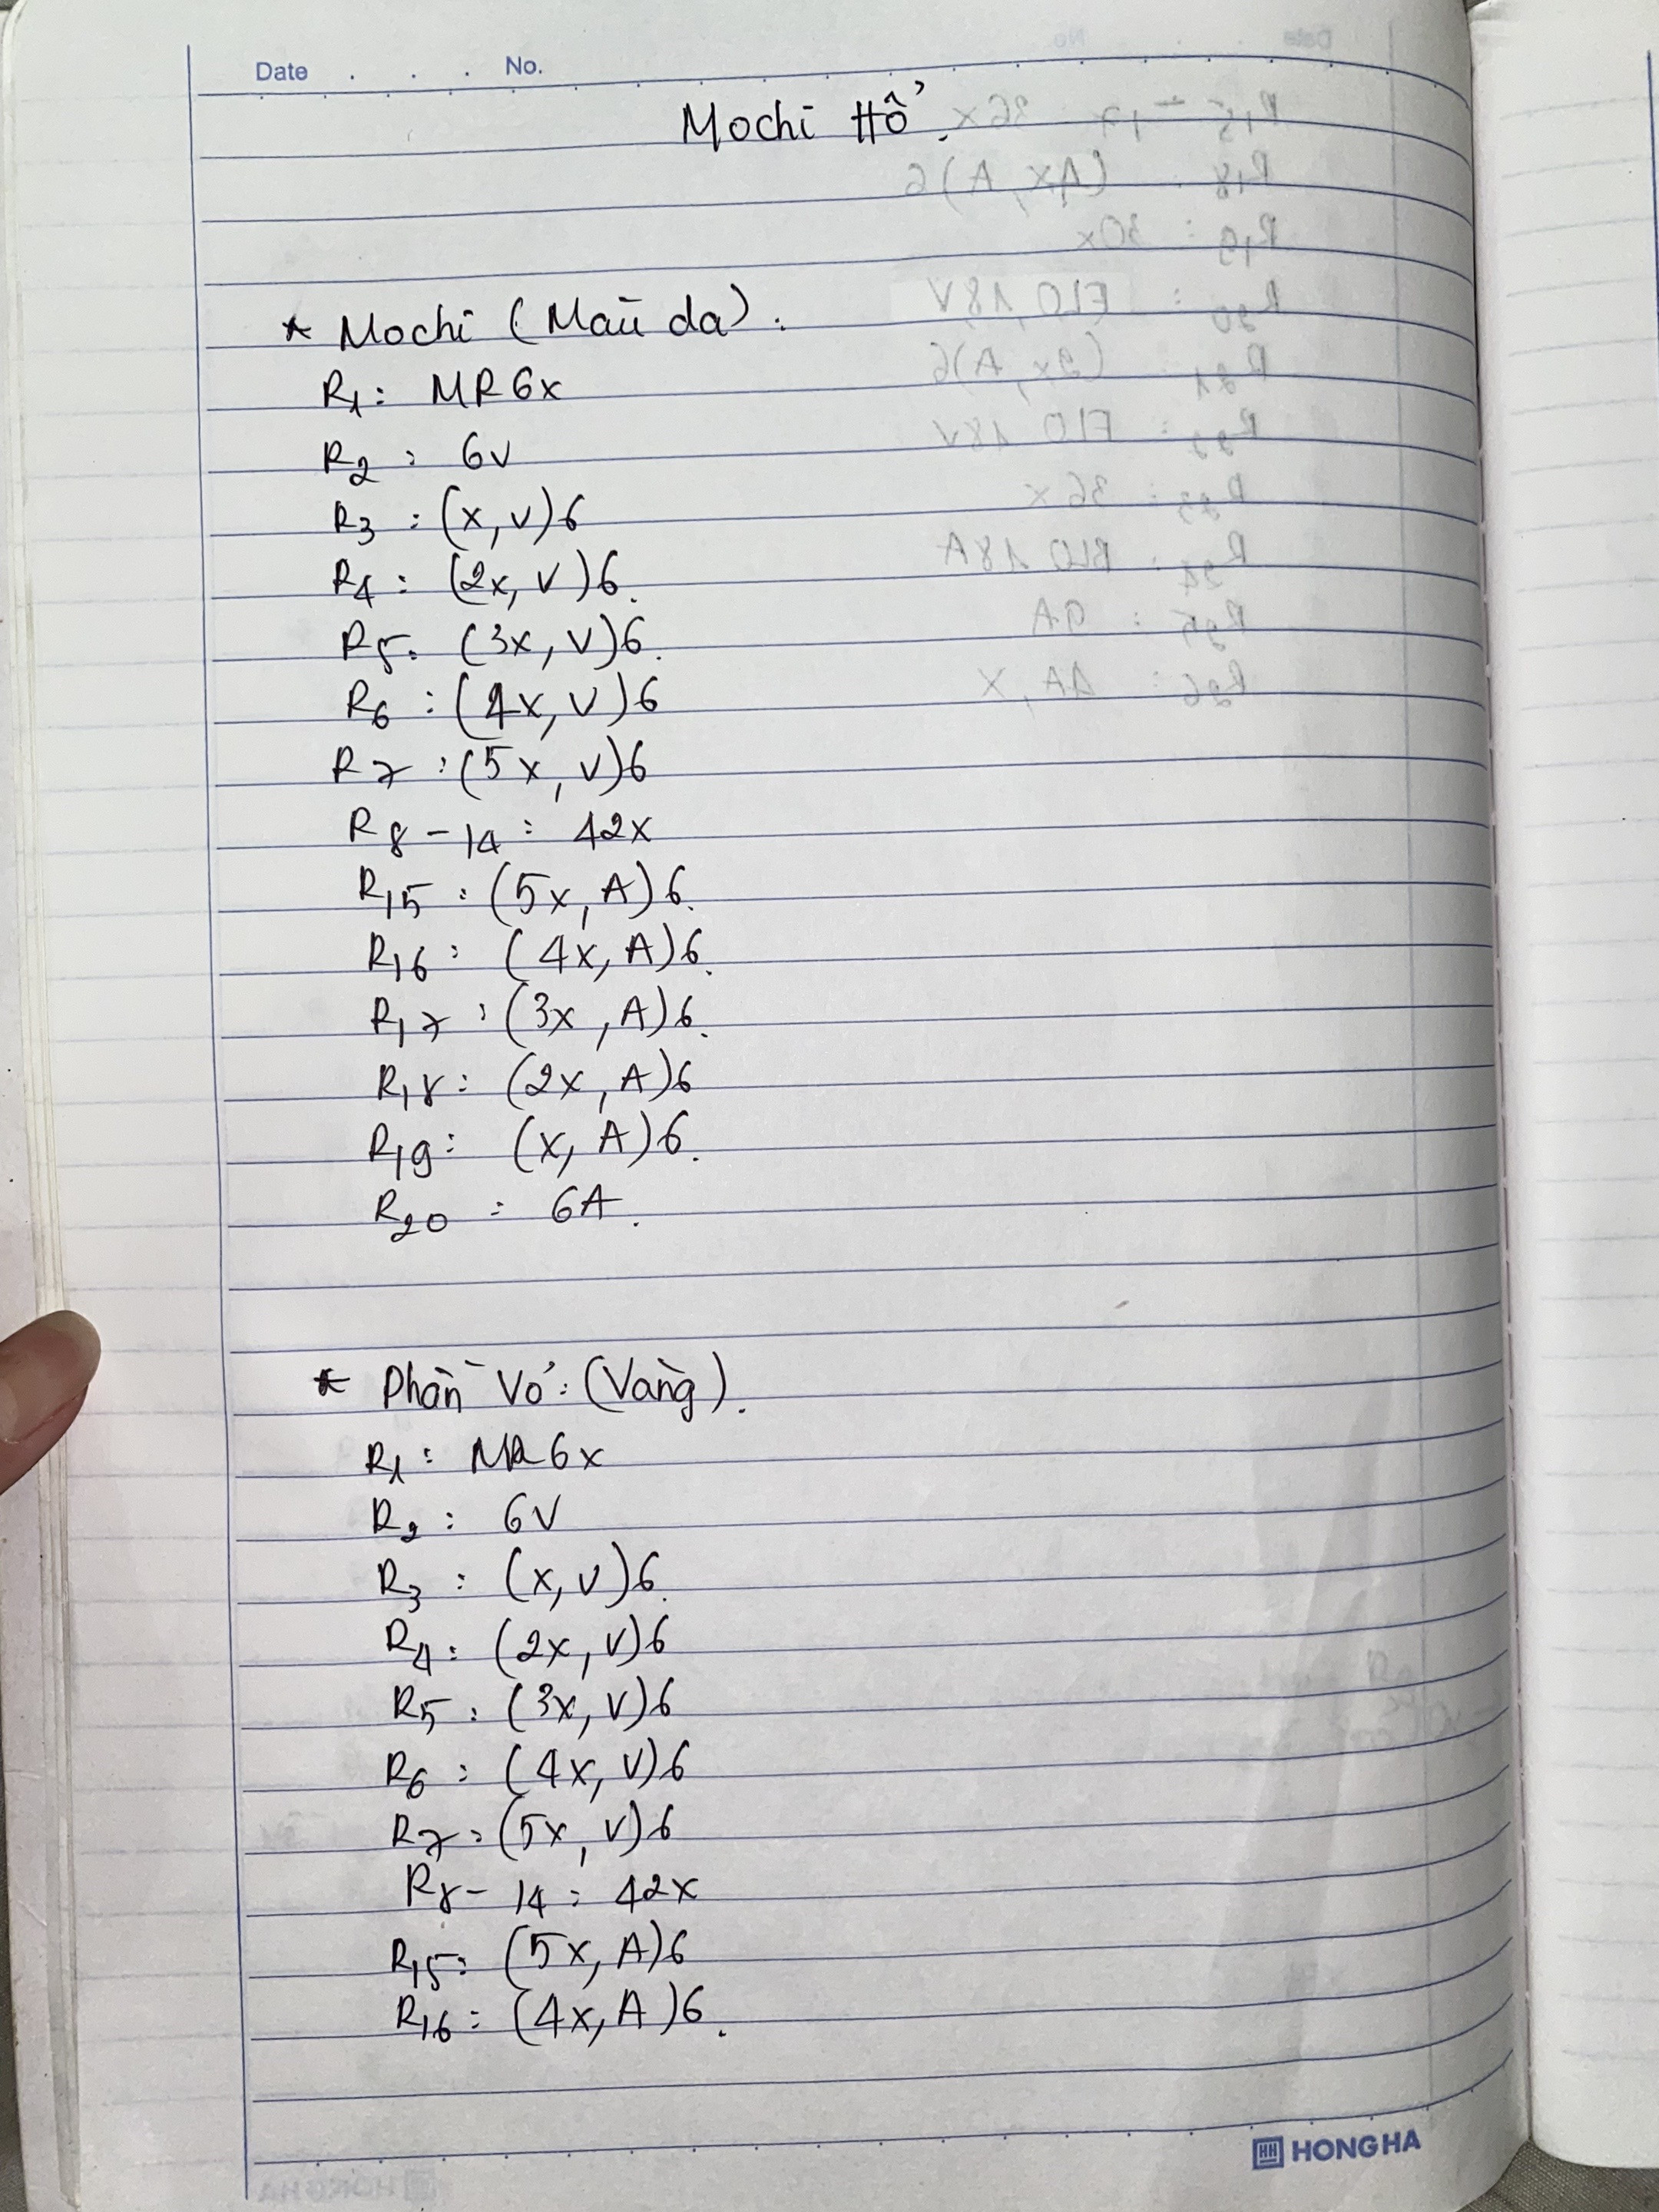 Date . . . No.
Mochi Hổ.
* Mochi (Màu da):
R1: MR 6x
R2: 6V
R3: (x, V)6
R4: (2x, V)6.
R5: (3x, V)6.
R6: (4x, V)6
R7: (5x, V)6
R8 - 14: 42x
R15: (5x, A)6.
R16: (4x, A)6.
R17: (3x, A)6.
R18: (2x, A)6
R19: (x, A)6.
R20: 6A.
* Phần Vỏ: (Vàng).
R1: MR 6x
R2: 6V
R3: (x, V)6.
R4: (2x, V)6
R5: (3x, V)6
R6: (4x, V)6
R7: (5x, V)6
R8 - 14: 42x
R15: (5x, A)6
R16: (4x, A)6.
HONG HA